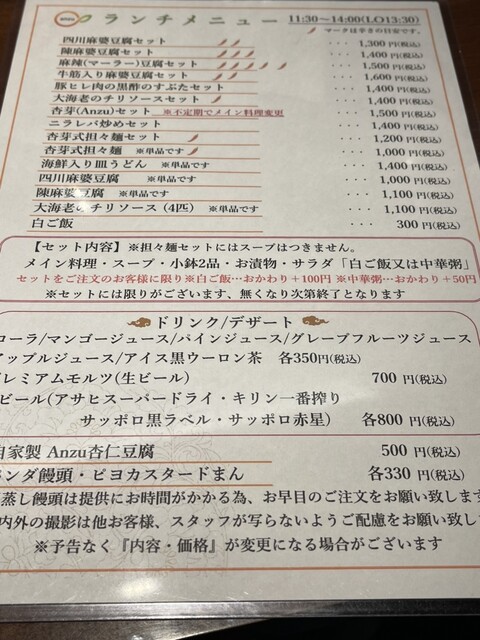 ランチメニュー 11:30～14:00(LO13:30)
マークは辛さの目安です。
四川麻婆豆腐セット ･･･ 1,300円(税込)
陳麻婆豆腐セット ･･･ 1,400円(税込)
麻辣(マーラー)豆腐セット ･･･ 1,500円(税込)
牛筋入り麻婆豆腐セット ･･･ 1,600円(税込)
豚ヒレ肉の黒酢のすぶたセット ･･･ 1,400円(税込)
大海老のチリソースセット ･･･ 1,400円(税込)
杏芽(Anzu)セット ※不定期でメイン料理変更 ･･･ 1,500円(税込)
ニラレバ炒めセット ･･･ 1,400円(税込)
杏芽式担々麺セット ･･･ 1,200円(税込)
杏芽式担々麺 ※単品です ･･･ 1,000円(税込)
海鮮入り皿うどん ※単品です ･･･ 1,400円(税込)
四川麻婆豆腐 ※単品です ･･･ 1,000円(税込)
陳麻婆豆腐 ※単品です ･･･ 1,100円(税込)
大海老のチリソース (4匹) ※単品です ･･･ 1,100円(税込)
白ご飯 ･･･ 300円(税込)
【セット内容】※担々麺セットにはスープはつきません。
メイン料理・スープ・小鉢2品・お漬物・サラダ「白ご飯又は中華粥」
セットをご注文のお客様に限り※白ご飯…おかわり＋100円 ※中華粥…おかわり＋50円
※セットには限りがございます、無くなり次第終了となります
ドリンク/デザート
コーラ/マンゴージュース/パインジュース/グレープフルーツジュース
アップルジュース/アイス黒ウーロン茶 各350円(税込)
プレミアムモルツ(生ビール) 700 円(税込)
ビール(アサヒスーパードライ・キリン一番搾り
サッポロ黒ラベル・サッポロ赤星) 各800 円(税込)
自家製 Anzu杏仁豆腐 500 円(税込)
パンダ饅頭・ピヨカスタードまん 各330 円(税込)
蒸し饅頭は提供にお時間がかかる為、お早目のご注文をお願い致します
内外の撮影は他お客様、スタッフが写らないようご配慮をお願い致し
※予告なく『内容・価格』が変更になる場合がございます